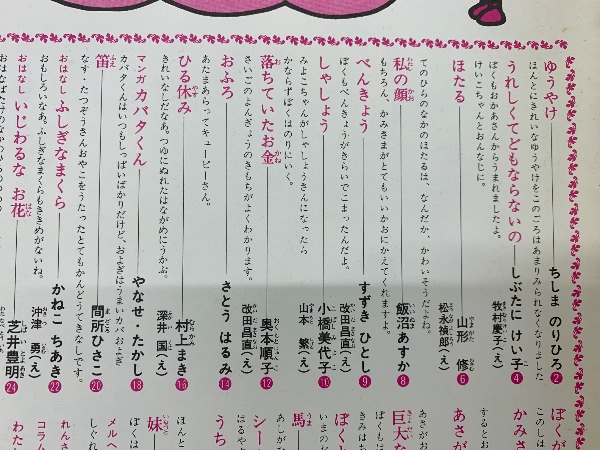 ゆうやけ ちしま のりひろ 2
ほんとにきれいなゆうやけをこのごろはあまりみられなくなりました
うれしくてどもならないの しぶたに けい子 4
ぼくもおかあさんからうまれましたよ。 牧村慶子(え)
けいこちゃんとおんなじに。
ほたる 山形 修 6
てのひらのなかのほたるは、なんだか、かわいそうだよね。 松永禎郎(え)
私の顔 飯沼あすか 8
もちろん、かみさまがとてもいいかおにかえてくれますよ。
べんきょう すずき ひとし 9
ぼくもべんきょうがきらいでこまったんだよ。 改田昌直(え)
しゃしょう 小橋美代子 10
みよこちゃんがしゃしょうさんになったら 山本 繁(え)
かならずぼくはのりにいく。
落ちていたお金 奥本順子 12
さいごのよんぎょうのきもちがよくわかります。 改田昌直(え)
おふろ さとう はるみ 14
あたまあらってキューピーさん。
ひる休み 村上まき 16
きれいなしだなあ。つゆにぬれたはながめにうかぶ。 深井 国(え)
マンガ カバタくん やなせ・たかし 18
カバタくんはいつもしっぱいばかりだけど、およぎはうまいカバおよぎ
笛 間所ひさこ 20
なす・たつぞうさんおやこをうたったとてもかんどうてきなしです。
おはなし ふしぎなまくら かねこ ちあき 22
おもしろいなあ。ふしぎなまくらもききめがないね。 沖津 勇(え)
おはなし いじわるな お花 芝井豊明 24
ぼくが
このしは
かみさ
するとお
あさが
あさがお
巨大な
ぼくもは
きみはち
ぼくと
いまのお
馬
あしが
シー
はるやす
うち
ほんと
妹
ぼくは
メルヘ
しぐれ
れんさ
コラム
わた